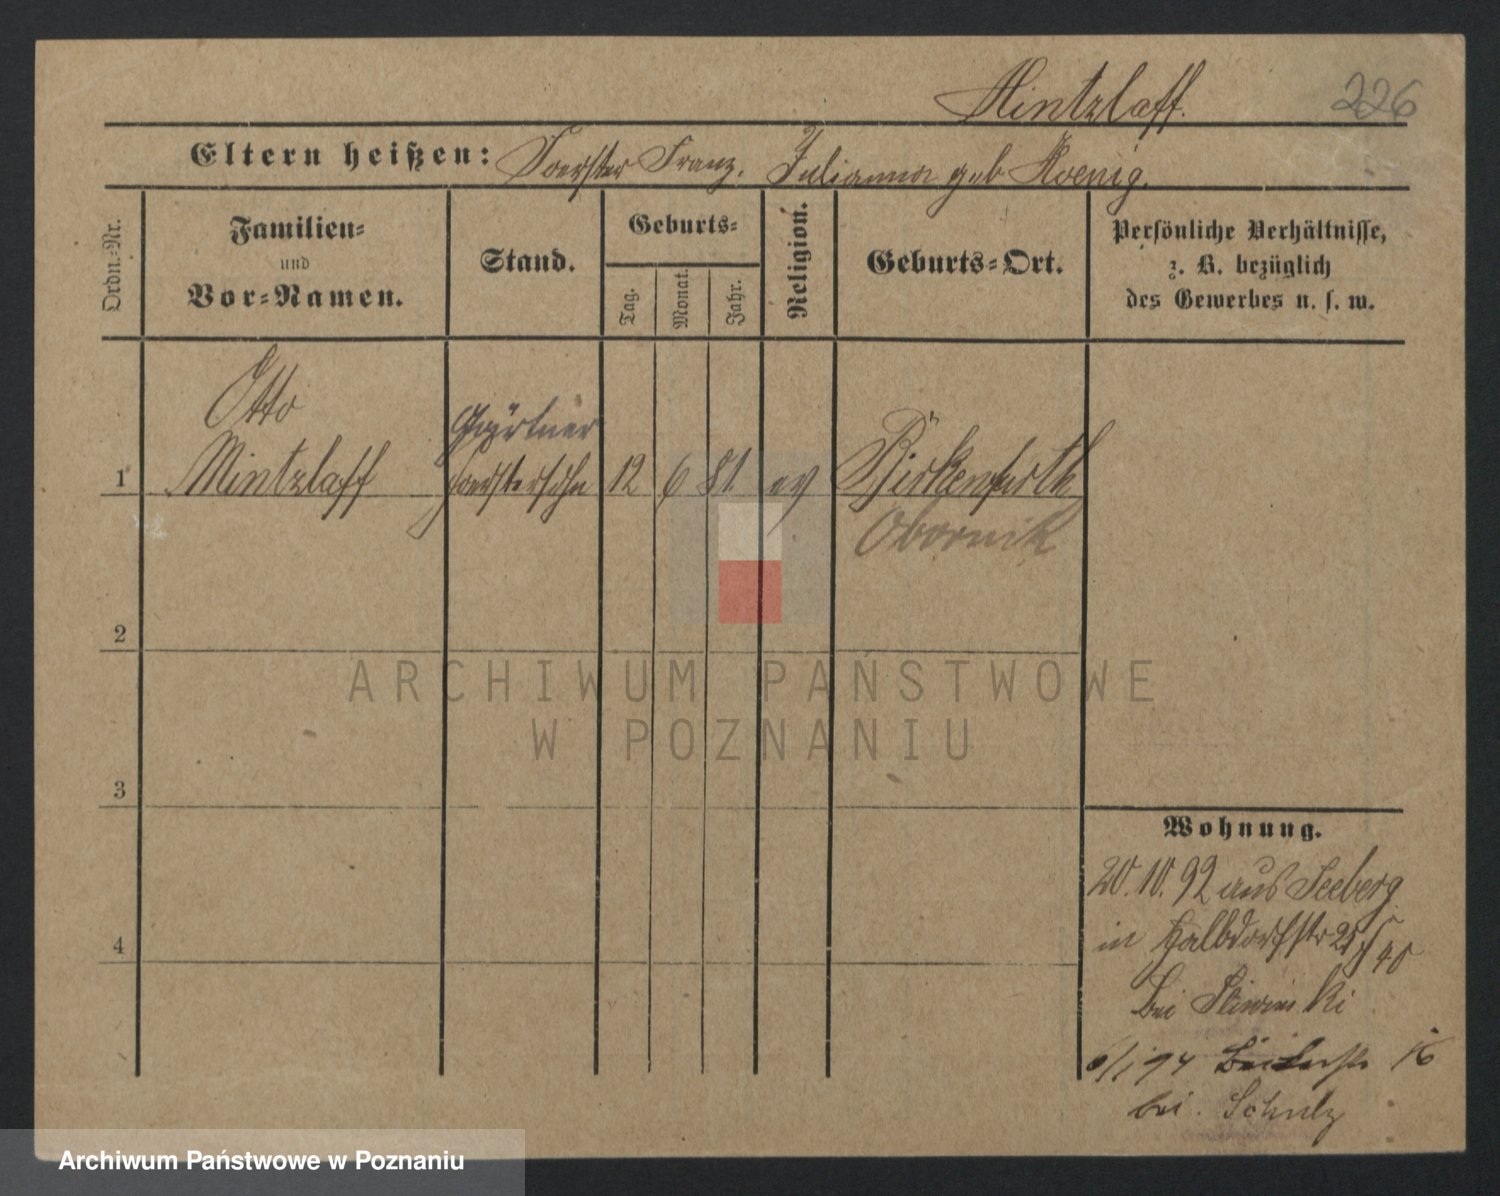 Mintzlaff.
226
Eltern heißen: Foerster Franz, Julianna geb Koenig.
Ordn.=Nr.
Familien=
und
Vor=Namen.
Stand.
Geburts=
Tag.
Monat.
Jahr.
Religion.
Geburts=Ort.
Persönliche Verhältnisse,
z. B. bezüglich
des Gewerbes u. s. w.
Otto
Gärtner
1 Mintzlaff Foerstersohn 12 6 81 ev Birkenfurth
Obornik
2
ARCHIWUM PAŃSTWOWE
W POZNANIU
3
Wohnung.
20.10.92 aus Seeberg
in Halbdorfstr 25
40
4
bei
6/1 94 16
bei Schulz
Archiwum Państwowe w Poznaniu